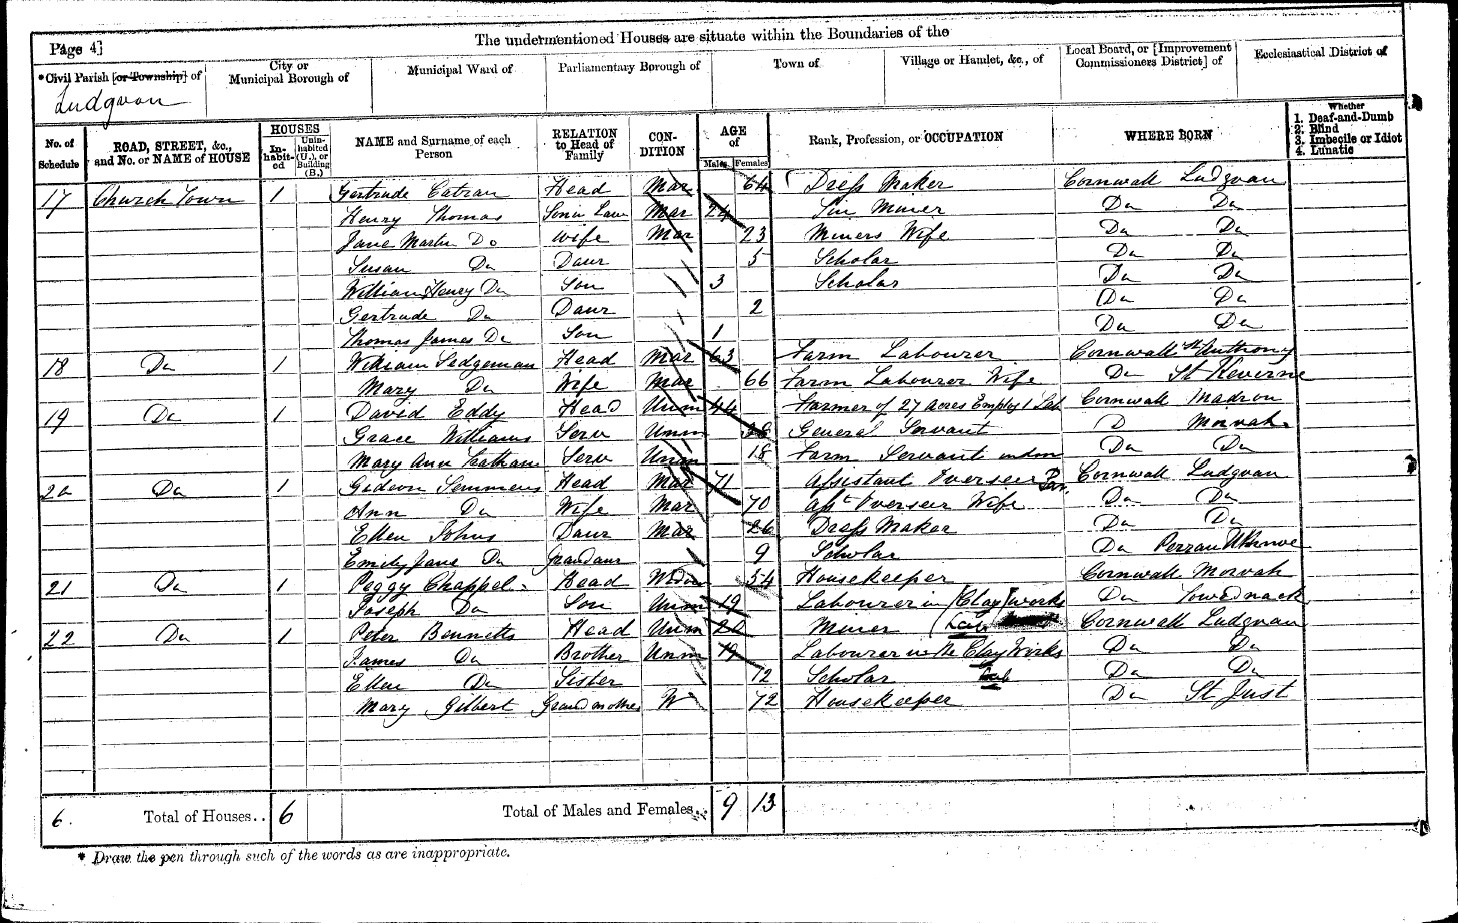 Page 4]
The undermentioned Houses are situate within the Boundaries of the
*Civil Parish [or Township] of
City or Municipal Borough of
Municipal Ward of
Parliamentary Borough of
Town of
Village or Hamlet, &c., of
Local Board, or [Improvement Commissioners District] of
Ecclesiastical District of
Ludgvan
No. of Schedule
ROAD, STREET, &c., and No. or NAME of HOUSE
HOUSES
In-habit-ed
Unin-habited (U.), or Building (B.)
NAME and Surname of each Person
RELATION to Head of Family
CON-DITION
AGE of
Males
Females
Rank, Profession, or OCCUPATION
WHERE BORN
Whether
1. Deaf-and-Dumb
2. Blind
3. Imbecile or Idiot
4. Lunatic
17 Church Town 1 Gertrude Head Mar 64 Dress Maker Cornwall Ludgvan
Henry Thomas Son in Law Mar 24 Tin Miner Do Do
Jane Martin Do Wife Mar 23 Miners Wife Do Do
Susan Do Daur 5 Scholar Do Do
William Henry Do Son 3 Scholar Do Do
Gertrude Do Daur 2 Do Do
Thomas James Do Son 1 Do Do
18 Do 1 William Sedgeman Head Mar 63 Farm Labourer Cornwall St Anthony
Mary Do Wife Mar 66 Farm Labourer Wife Do St Keverne
19 Do 1 David Eddy Head Unm 44 Farmer of 27 Acres Employ 1 Lab Cornwall Madron
Grace Williams Serv Unm General Servant D Morvah
Mary Ann Serv Unm 18 Farm Servant indoor Do Do
20 Do 1 Gideon Semmens Head Mar 71 Assistant Overseer Cornwall Ludgvan
Ann Do Wife Mar 70 Asst Overseer Wife Do Do
Ellen Johns Daur Mar 26 Dress Maker Do Do
Emily Jane Do Grandaur 9 Scholar Do
21 Do 1 Peggy Chappel Head Widow 54 Housekeeper Cornwall Morvah
Joseph Do Son Unm 19 Labourer in (Clay) works Do Towednack
22 Do 1 Peter Bennetts Head Unm Miner Lab Cornwall Ludgvan
James Do Brother Unm 19 Labourer in the Clay Works Do Do
Ellen Do Sister 12 Scholar Lab Do Do
Mary Gilbert Grandmother W 72 Housekeeper Do St Just
6. Total of Houses.. 6 Total of Males and Females.. 9 13
* Draw the pen through such of the words as are inappropriate.